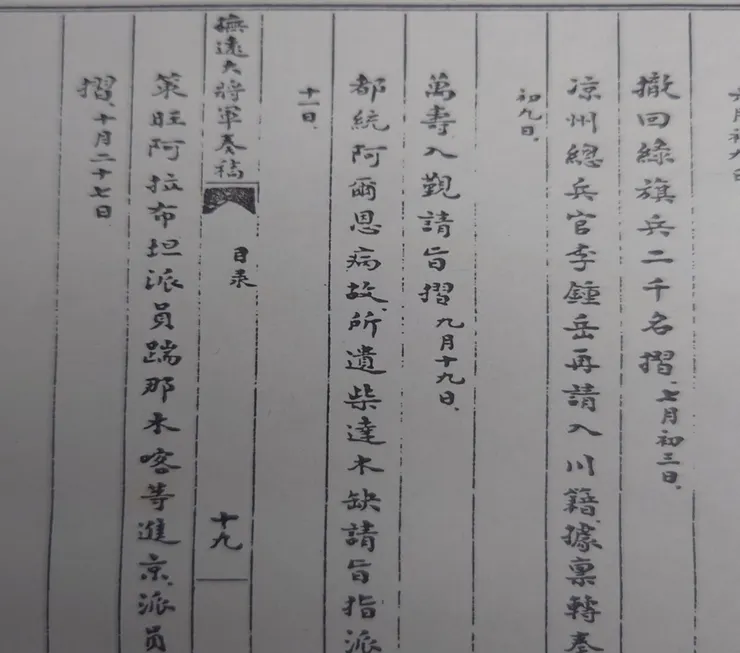 撤回綠旗兵二千名摺、七月初三日、
凉州總兵官李鍾岳再請入川籍據禀轉奏
初九日、
萬壽入覲請旨摺九月十九日、
都統阿爾恩病故、所遺柴達木缺請旨指派
十一日、
撫遠大將軍奏稿 目录 十九
策旺阿拉布坦派員踹那木喀等進京、派員
摺、十月二十七日